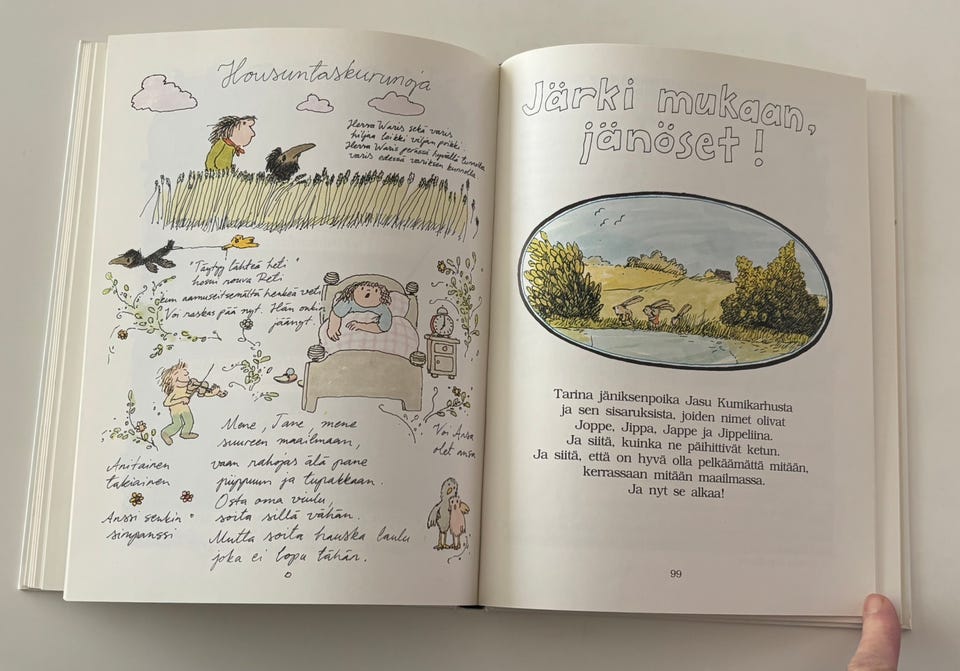 Housuntaskurunoja
Herra Waris sekä varis
hiljaa leikki viljan poikki.
Herra Waris perässä hyvällä tuulella
varis edessä variksen kuonolla
"Täytyy lähteä heti"
hassi rouva Reti
kun aamuseitsemältä henkeä veti
Voi raskas pää nyt. Hän onkin
jäänyt.
Mene, Jane mene
suureen maailmaan,
vaan rahojas älä pane
piippuun ja tupakkaan.
Osta oma viulu,
soita sillä vähän.
Mutta soita hauska laulu
joka ei lopu tähän.
Anitainen
takiainen
Anssi senkin
sinpanssi
Voi Ansa
olet ansa
Järki mukaan,
jänöset!
Tarina jäniksenpoika Jasu Kumikarhusta
ja sen sisaruksista, joiden nimet olivat
Joppe, Jippa, Jappe ja Jippeliina.
Ja siitä, kuinka ne päihittivät ketun.
Ja siitä, että on hyvä olla pelkäämättä mitään,
kerrassaan mitään maailmassa.
Ja nyt se alkaa!
99